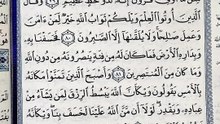 إِنَّهُۥ لَذُو حَظٍّ عَظِيمٍ ٧٩ وَقَالَ
ٱلَّذِينَ أُوتُوا۟ ٱلْعِلْمَ وَيْلَكُمْ ثَوَابُ ٱللَّهِ خَيْرٌ لِّمَنْ ءَامَنَ
وَعَمِلَ صَٰلِحًا وَلَا يُلَقَّىٰهَآ إِلَّا ٱلصَّٰبِرُونَ ٨٠ فَخَسَفْنَا بِهِۦ
وَبِدَارِهِ ٱلْأَرْضَ فَمَا كَانَ لَهُۥ مِن فِئَةٍ يَنصُرُونَهُۥ مِن دُونِ ٱللَّهِ
وَمَا كَانَ مِنَ ٱلْمُنتَصِرِينَ ٨١ وَأَصْبَحَ ٱلَّذِينَ تَمَنَّوْا۟ مَكَانَهُۥ
بِٱلْأَمْسِ يَقُولُونَ وَيْكَأَنَّ ٱللَّهَ يَبْسُطُ ٱلرِّزْقَ لِمَن يَشَآءُ مِنْ
عِبَادِهِۦ وَيَقْدِرُ لَوْلَآ أَن مَّنَّ ٱللَّهُ عَلَيْنَا لَخَسَفَ بِنَا وَيْكَأَنَّهُۥ